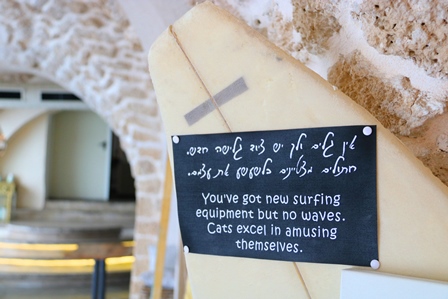 אין גלים ולך יש ציוד גלישה חדש.
חתולים מצטיינים בלשעשע את עצמם.
You've got new surfing
equipment but no waves.
Cats excel in amusing
themselves.